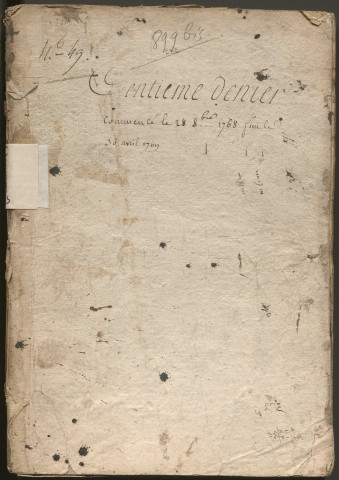 N.o 49.
899 bis
Centieme denier
Commencé le 28 8.bre 1768 fini le
30 avril